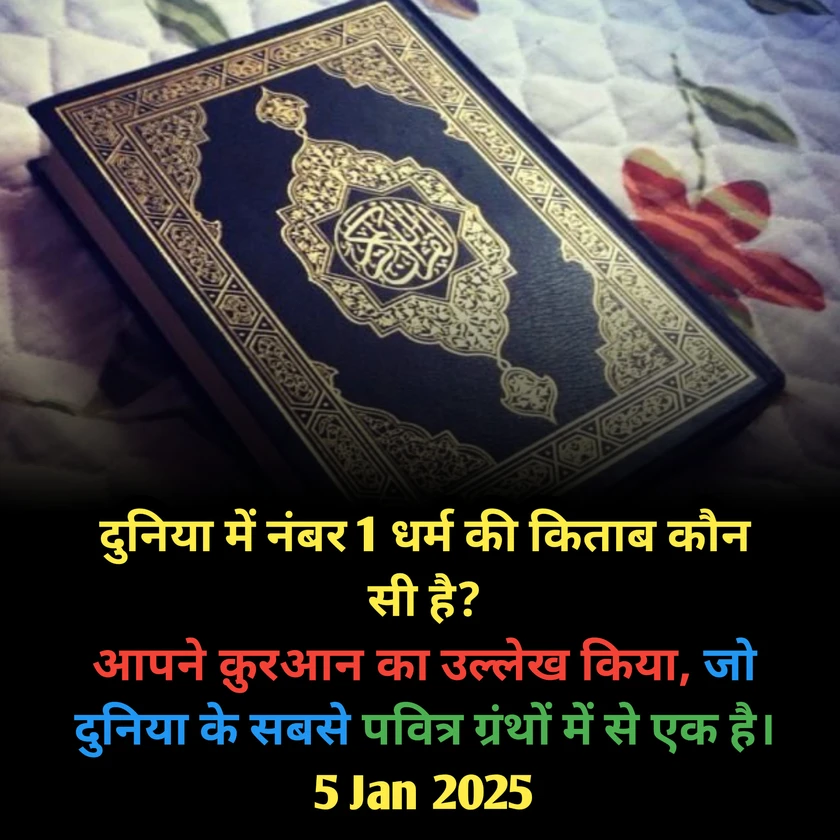 القرآن الكريم
दुनिया में नंबर 1 धर्म की किताब कौन
सी है?
आपने क़ुरआन का उल्लेख किया, जो
दुनिया के सबसे पवित्र ग्रंथों में से एक है।
5 Jan 2025